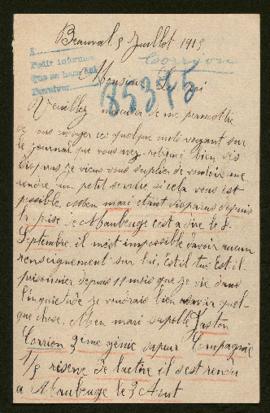 Beauval 5 Juillet 1915
A
Pedir informes
Que se
Corrion
Monsieur
85345
Veuillez de me permettre
de vous envoyer ces quelques mots voyant sur
le journal que vous avez retrouvé bien des
disparus je viens vous suplier de vouloir me
rendre un petit service si cela vous est
possible. Mon mari étant disparus depuis
la prise de Maubeuge c'est a dire le 8
Septembre il m'est impossible d'avoir aucun
renseignement sur lui. Est il tué Est il
prisonnier depuis 11 mois que je vie dans
l'inquiétude je voudrais bien savoir quel
que chose. Mon mari s'apelle Gaston
Corrion 3eme génie sapeur Compagnie
1/3 réserve de l'active il c'est rendu
a Maubeuge le 3 Aout